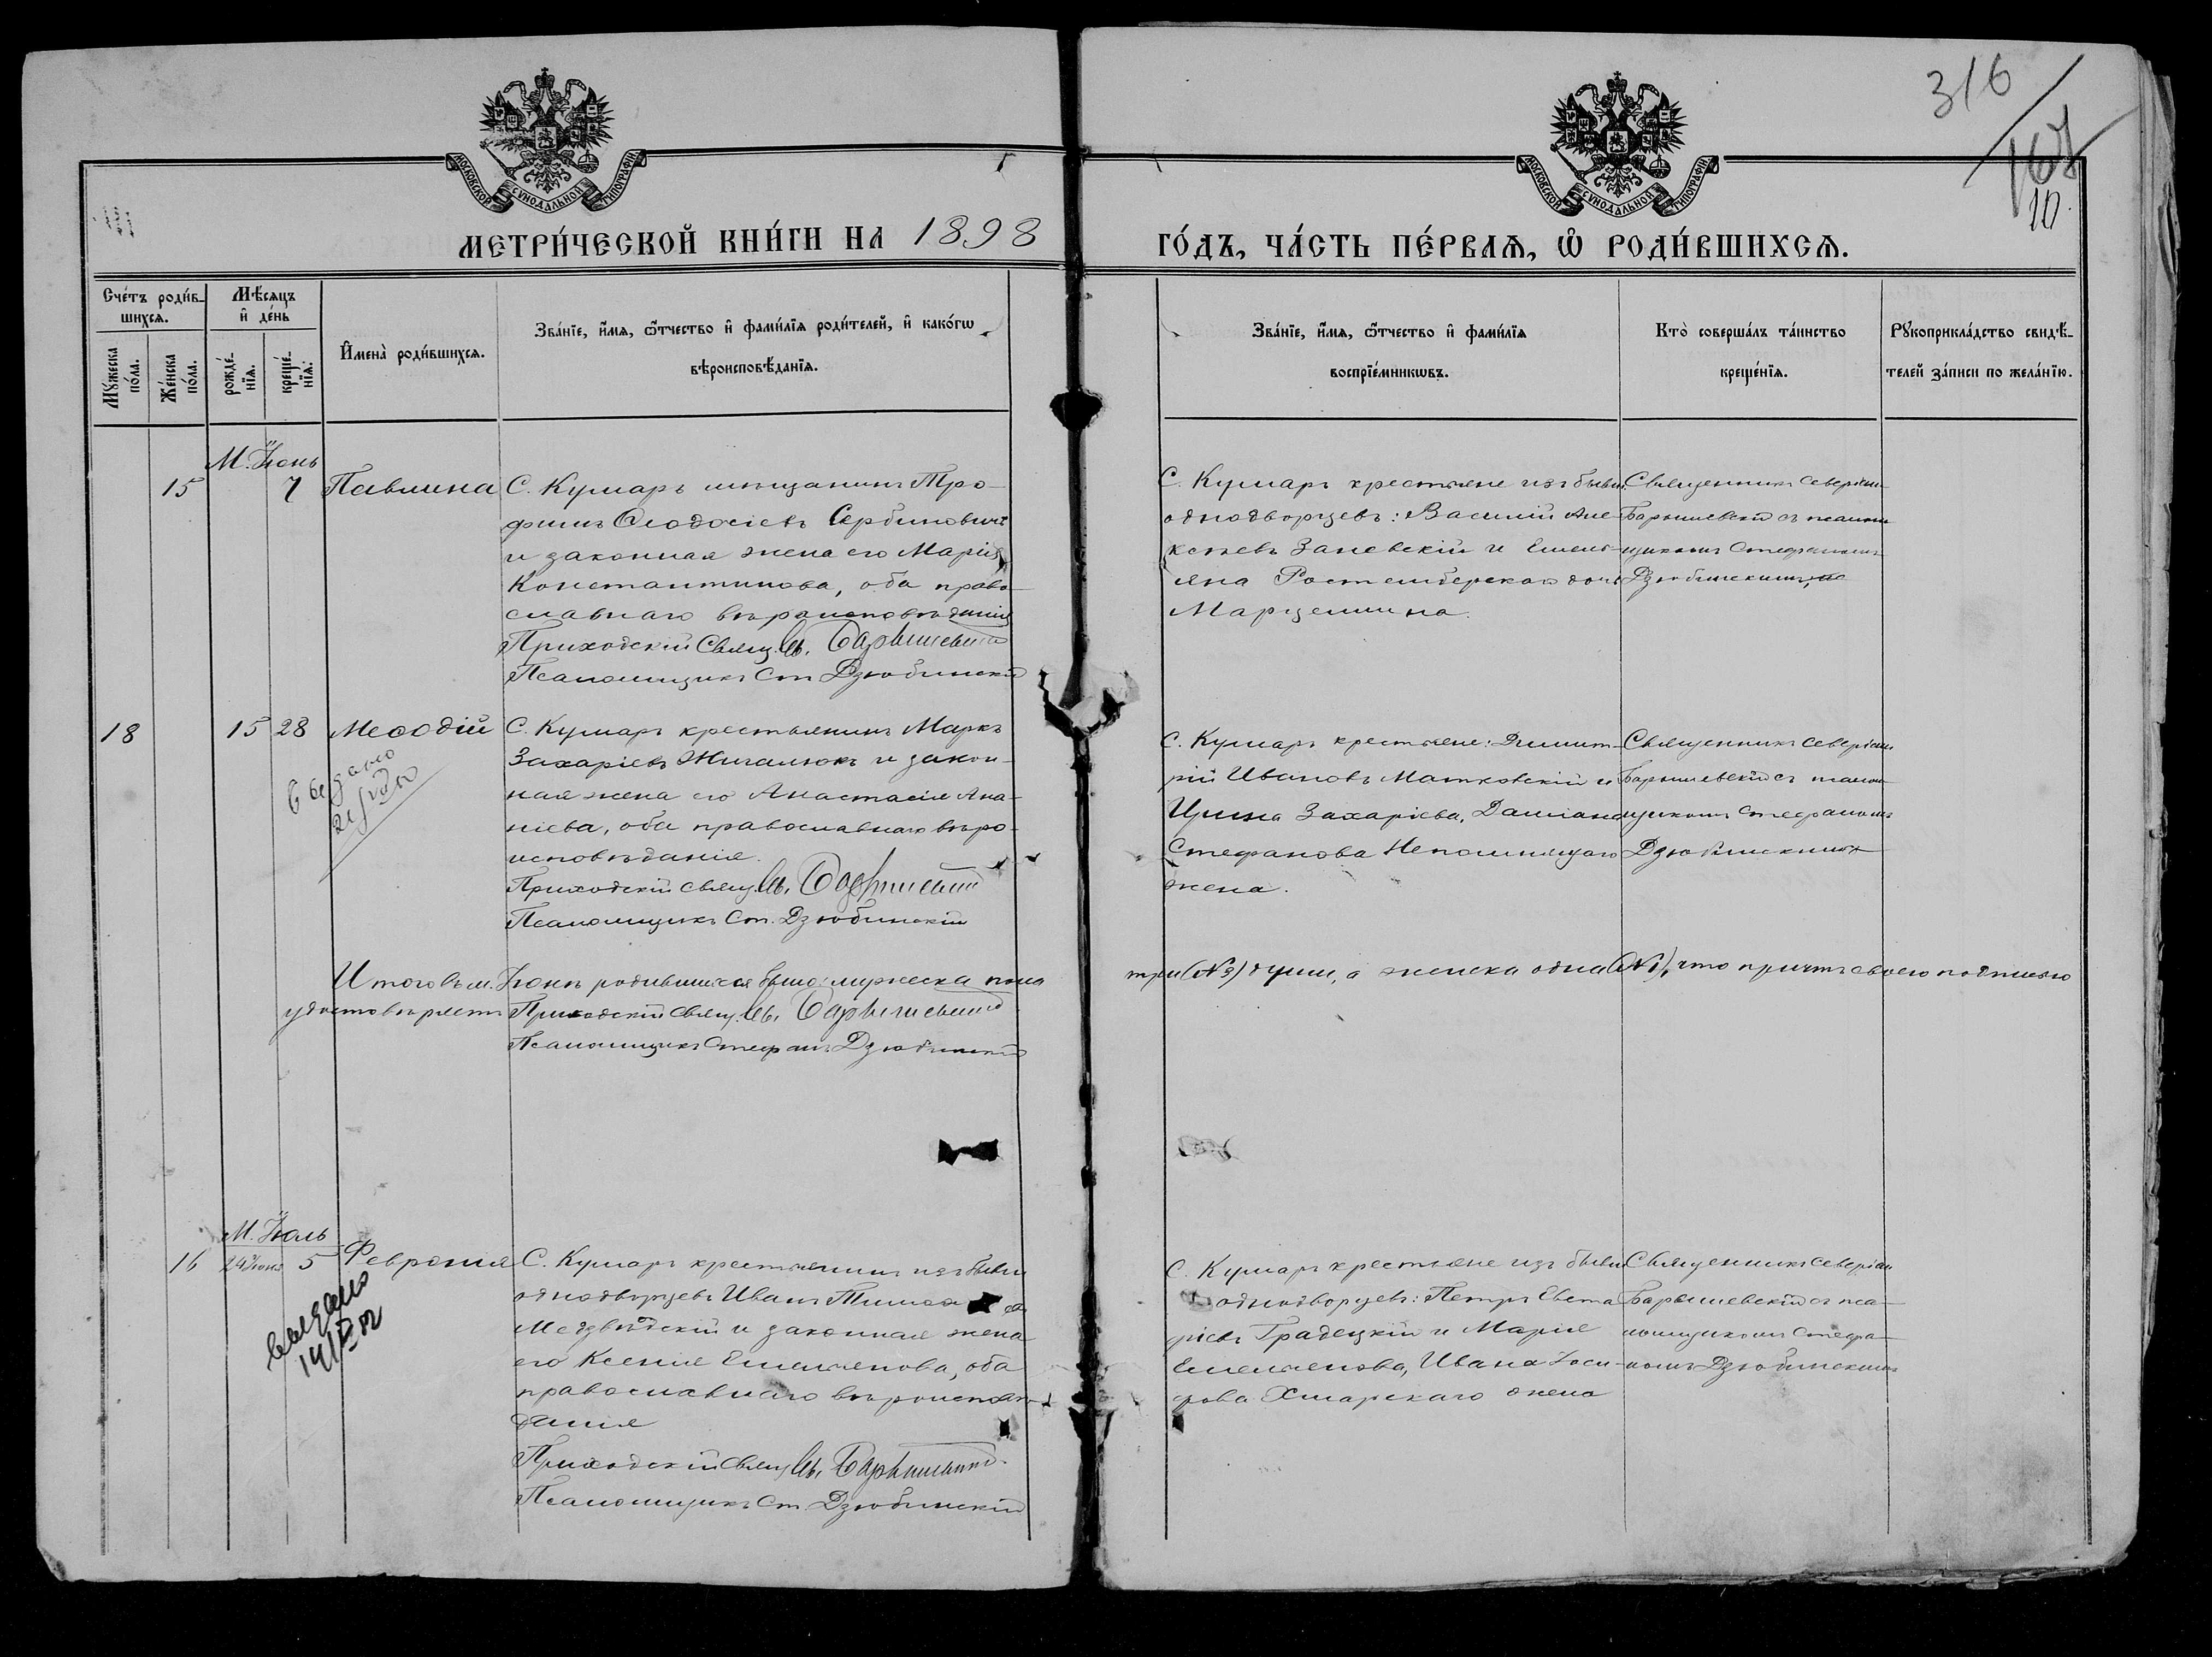 316
167
10.
МОСКОВСКОЙ СѴНОДАЛЬНОЙ ТИПОГРАФІИ
МОСКОВСКОЙ СѴНОДАЛЬНОЙ ТИПОГРАФІИ
МЕТРИ́ЧЕСКОЙ КНИ́ГИ НА 1898
ГО́ДЪ, ЧА́СТЬ ПЕ́РВАЯ, Ѽ РОДИ́ВШИХСЯ.
Сче́тъ роди́в-
шихся.
Мꙋ́жеска по́ла.
Же́нска по́ла.
Мѣ́сяцъ и҆ де́нь
рожде́-нїя.
креще́-нїя.
И҆мена̀ роди́вшихся.
Зва́нїе, и҆́мя, ѻ҆́тчество и҆ фами́лїя роди́телей, и҆ како́гѡ
вѣроисповѣ́данїя.
Зва́нїе, и҆́мя, ѻ҆́тчество и҆ фами́лїя
воспрїе́мникѡвъ.
Кто̀ соверша́лъ та́инство
креще́нїя.
Рꙋкоприкла́дство свидѣ́-
телей за́писи по жела́нїю.
М. Іюнь
15 7 Павлина
С. Кумаръ мѣщанинъ Тро-
фимъ Ѳеодосіевъ Сербиновичъ
и законная жена его Марія
Константинова, оба право-
славнаго вѣроисповѣданія
Приходскій Свящ. Св. Барышевскій
Псаломщикъ Ст. Дзюбинскій
С. Кумаръ крестьяне изъ бывш.
однодворцевъ: Василій Але-
ксѣевъ Заневскій и Емель-
яна дочь
Марцелина.
Священникъ Северіанъ
Барышевскій съ псалом-
щикомъ Стефаномъ
Дзюбинскимъ
18 15 28 Меѳодій
Выдано
С. Кумаръ крестьянинъ Маркъ
Захаріевъ Жигалюкъ и закон-
ная жена его Анастасія Ана-
ніева, оба православнаго вѣро-
исповѣданія.
Приходскій Свящ. Св. Барышевскій
Псаломщикъ Ст. Дзюбинскій
С. Кумаръ крестьяне: Димит-
рій Ивановъ Матковскій и
Ирина Захаріева, Даміана
Стефанова Непомнящаго
жена.
Священникъ Северіанъ
Барышевскій съ псалом-
щикомъ Стефаномъ
Дзюбинскимъ
Итого въ м. Іюнѣ родившихся было: мужеска пола
три (№ 3) души, а женска одна (№ 1), что причтъ своею подписью
удостовѣряетъ Приходскій Свящ. Св. Барышевскій
Псаломщикъ Стефанъ Дзюбинскій
М. Іюль
16 24 Іюня 5 Февронія
Выдано
С. Кумаръ крестьянинъ изъ бывш
однодворцевъ Иванъ
Медзвѣдскій и законная жена
его Ксенія Емельянова, оба
православнаго вѣроисповѣ-
данія
Приходскій Свящ Св. Барышевскій
Псаломщикъ Ст. Дзюбинскій
С. Кумаръ крестьяне изъ бывш
однодворцевъ: Петръ Евста-
фіевъ Градецкій и Марія
Емельянова, Ивана Іоси-
фова Хмарскаго жена
Священникъ Северіанъ
Барышевскій съ пса-
ломщикомъ Стефа-
номъ Дзюбинскимъ